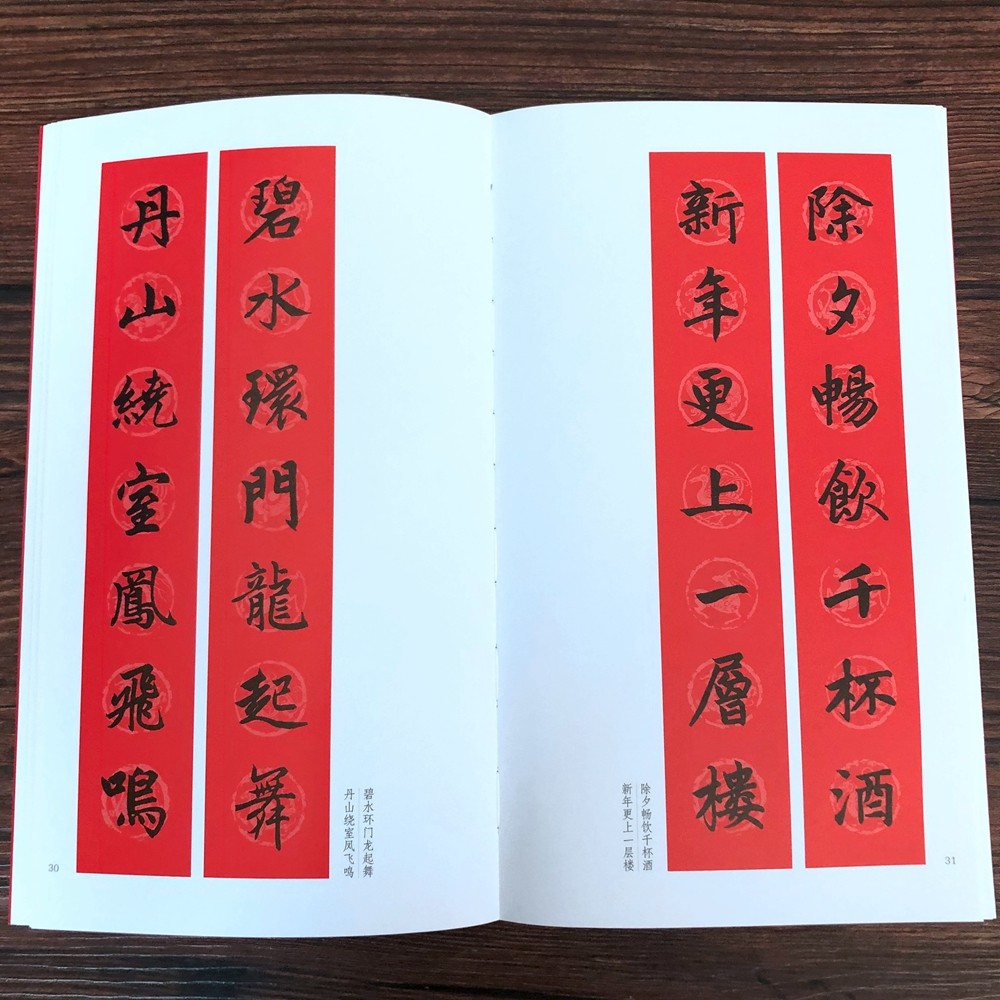 碧水環門龍起舞
丹山繞室鳳飛鳴
碧水环门龙起舞
丹山绕室凤飞鸣
30
除夕暢飲千杯酒
新年更上一層楼
除夕畅饮千杯酒
新年更上一层楼
31